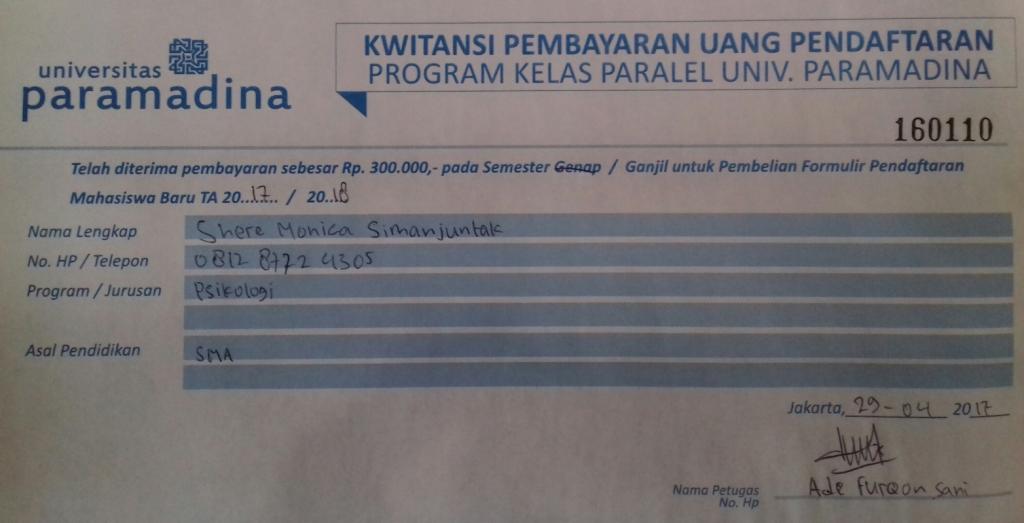 universitas
paramadina
KWITANSI PEMBAYARAN UANG PENDAFTARAN
PROGRAM KELAS PARALEL UNIV. PARAMADINA
160110
Telah diterima pembayaran sebesar Rp. 300.000,- pada Semester Genap / Ganjil untuk Pembelian Formulir Pendaftaran
Mahasiswa Baru TA 20..17.. / 20..18
Nama Lengkap Shere Monica Simanjuntak
No. HP / Telepon 0812 8772 4305
Program / Jurusan Psikologi
Asal Pendidikan SMA
Jakarta, 29-04 2017
Nama Petugas Ade Furqon Sani
No. Hp